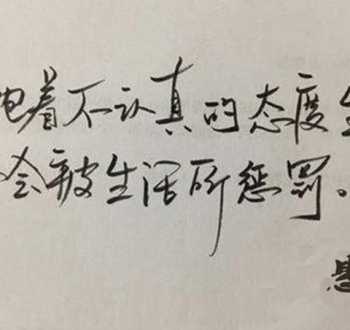 抱着不认真的态度生
会被生活所惩罚。